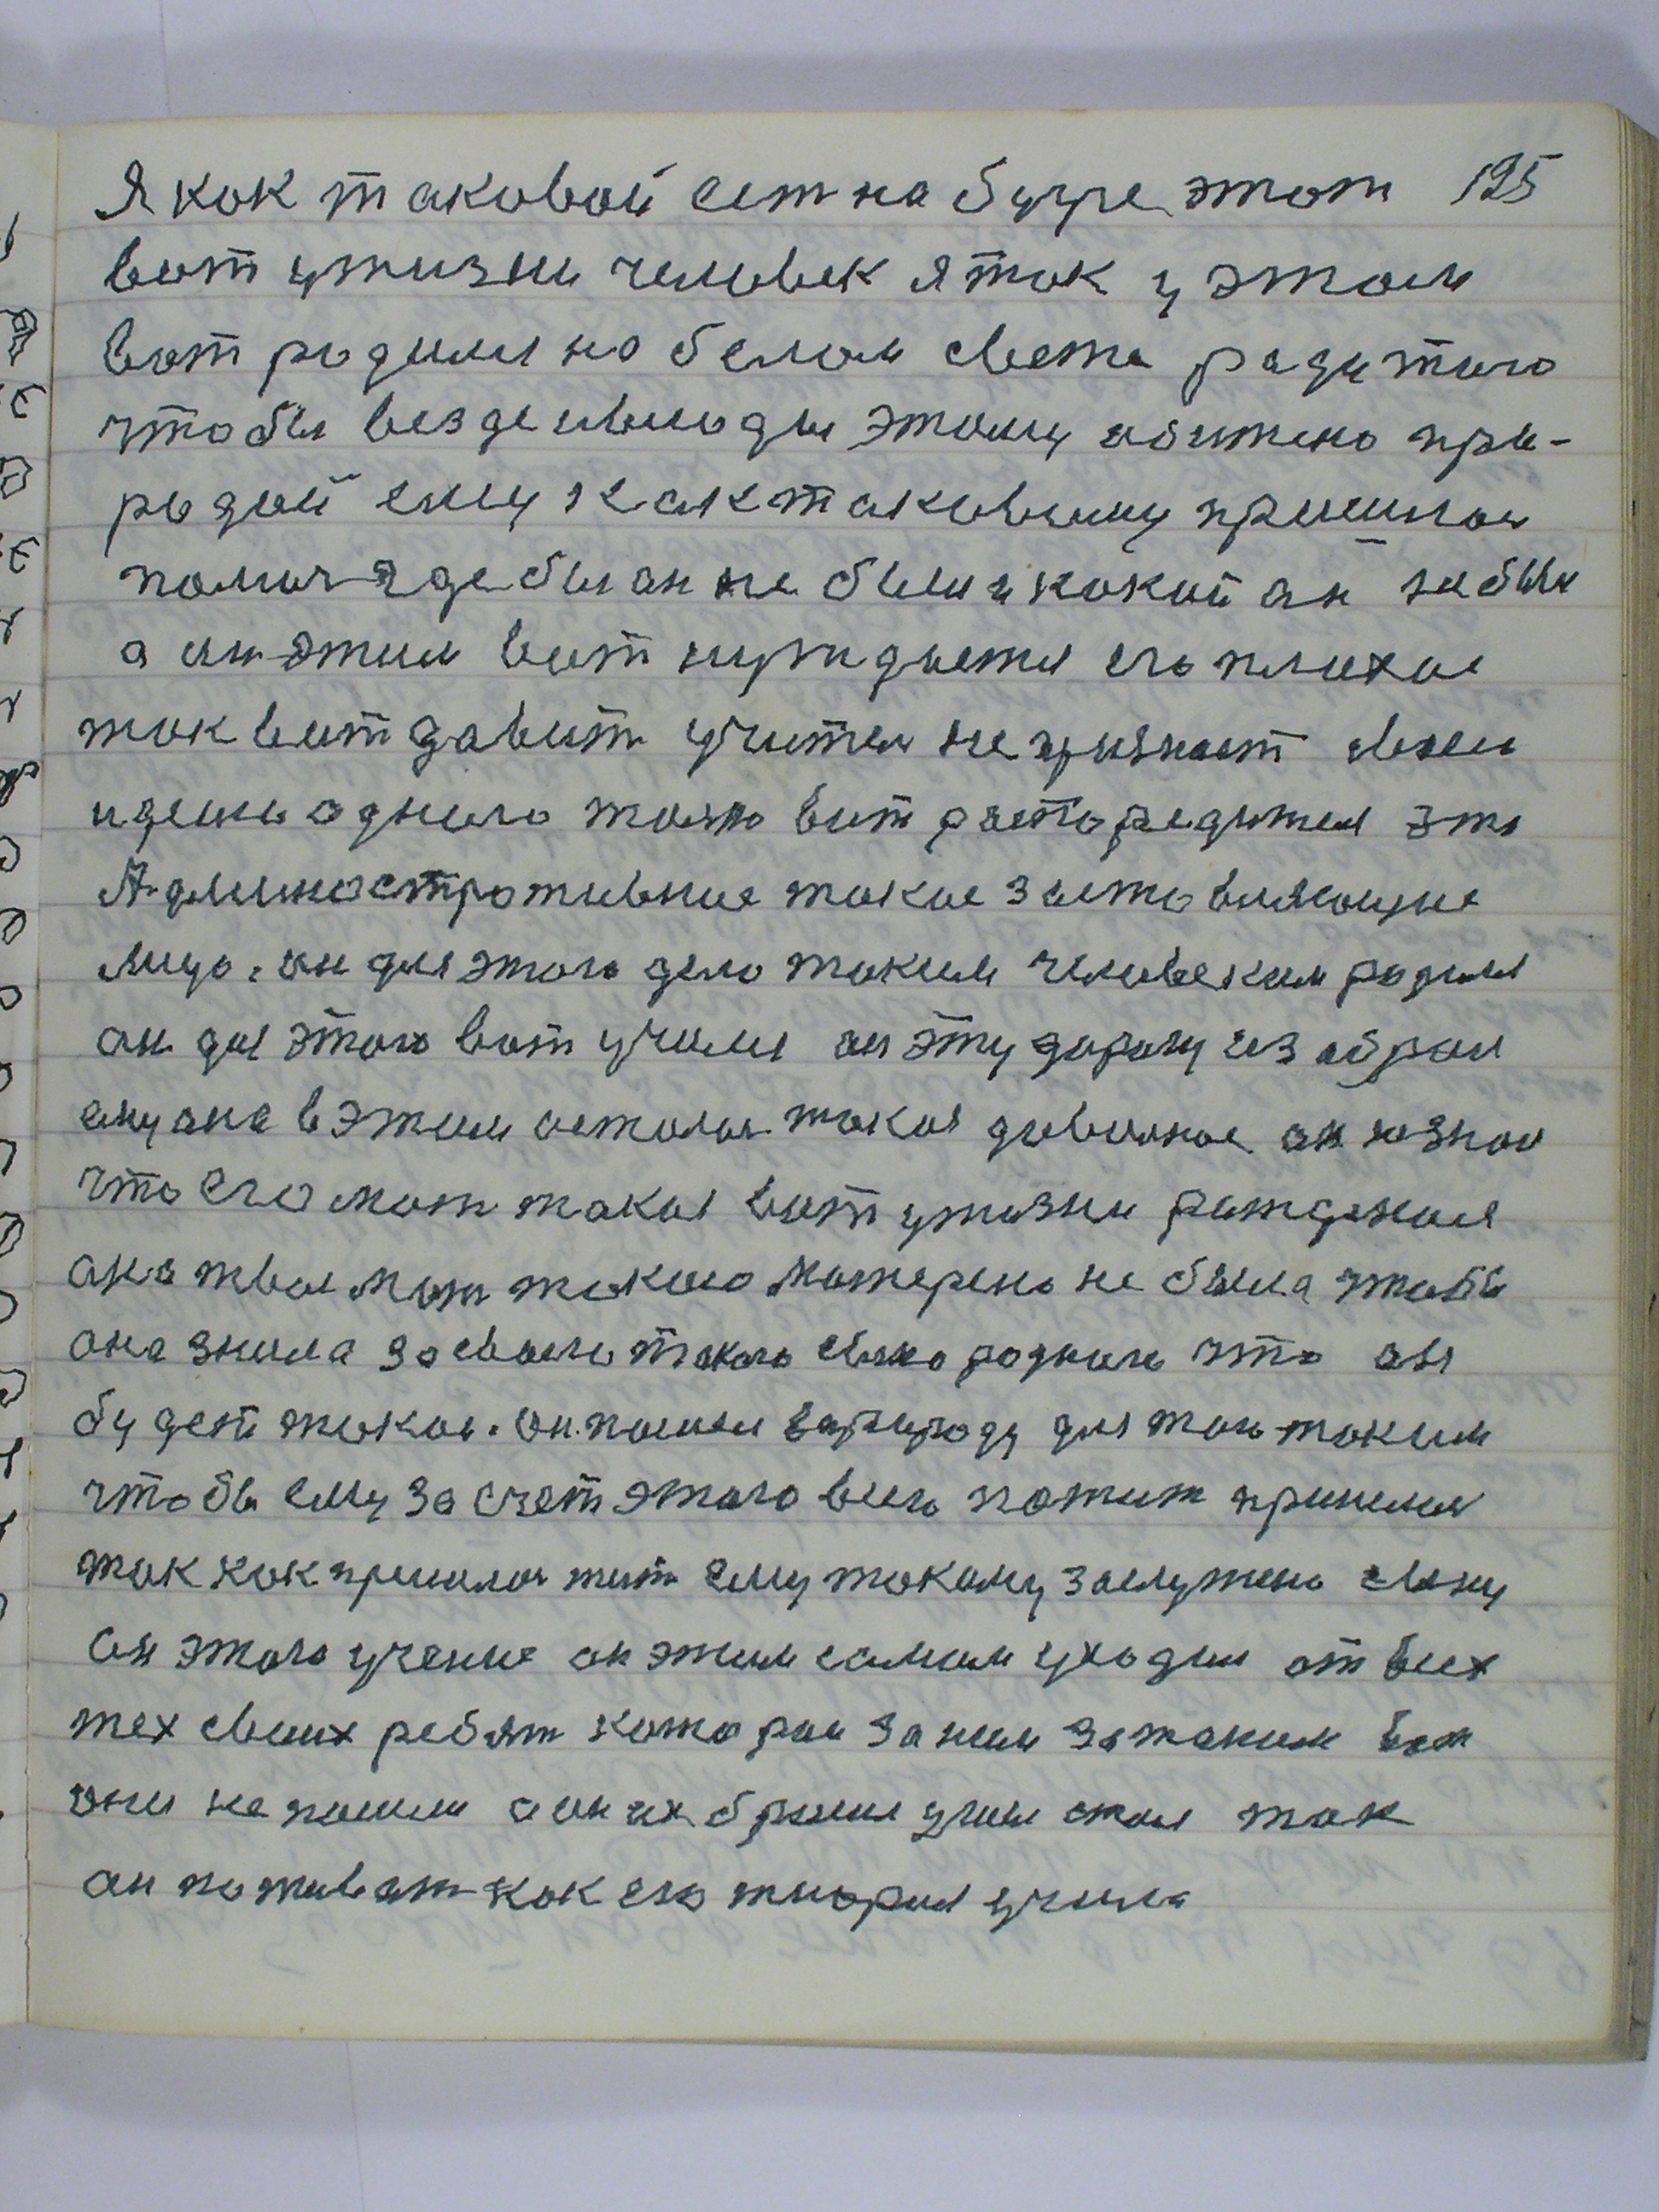 Я кок таковой ест на бугре этот 195
вот ужизни человек я так у этом
вот родиля но белом свете ради того
чтобы везде и всюды этому обижено при-
родой ему как таковому пришлос
помоч где бы ан не был и какой ан не был
а ин этим вот нуждается его плохое
так вот давит учител не признает свою
идею одного толко вот растаредится это
Админостротивное такое заставляющие
лицо. он для этого дело таким человеком родился
ан для этого вот училя ан эту дорогу избрал
ему она в этим осталос такая довольное ан не знал
что его мат такая вот ужизни рожденая
она твая мат такого материно не была чтобы
она знала за своего такого сыно родного что ан
будет таков. он пошел вприроду для того таким
чтобы ему за счет этого всего пожит пришлос
так как пришлос жит ему такому заслужено сыну
ан этого учение он этим самим уходил от всех
тех своих ребят которые за ним за таким вот
они не пошли а он их бросил учит стал так
ан поживат как его тиория учила